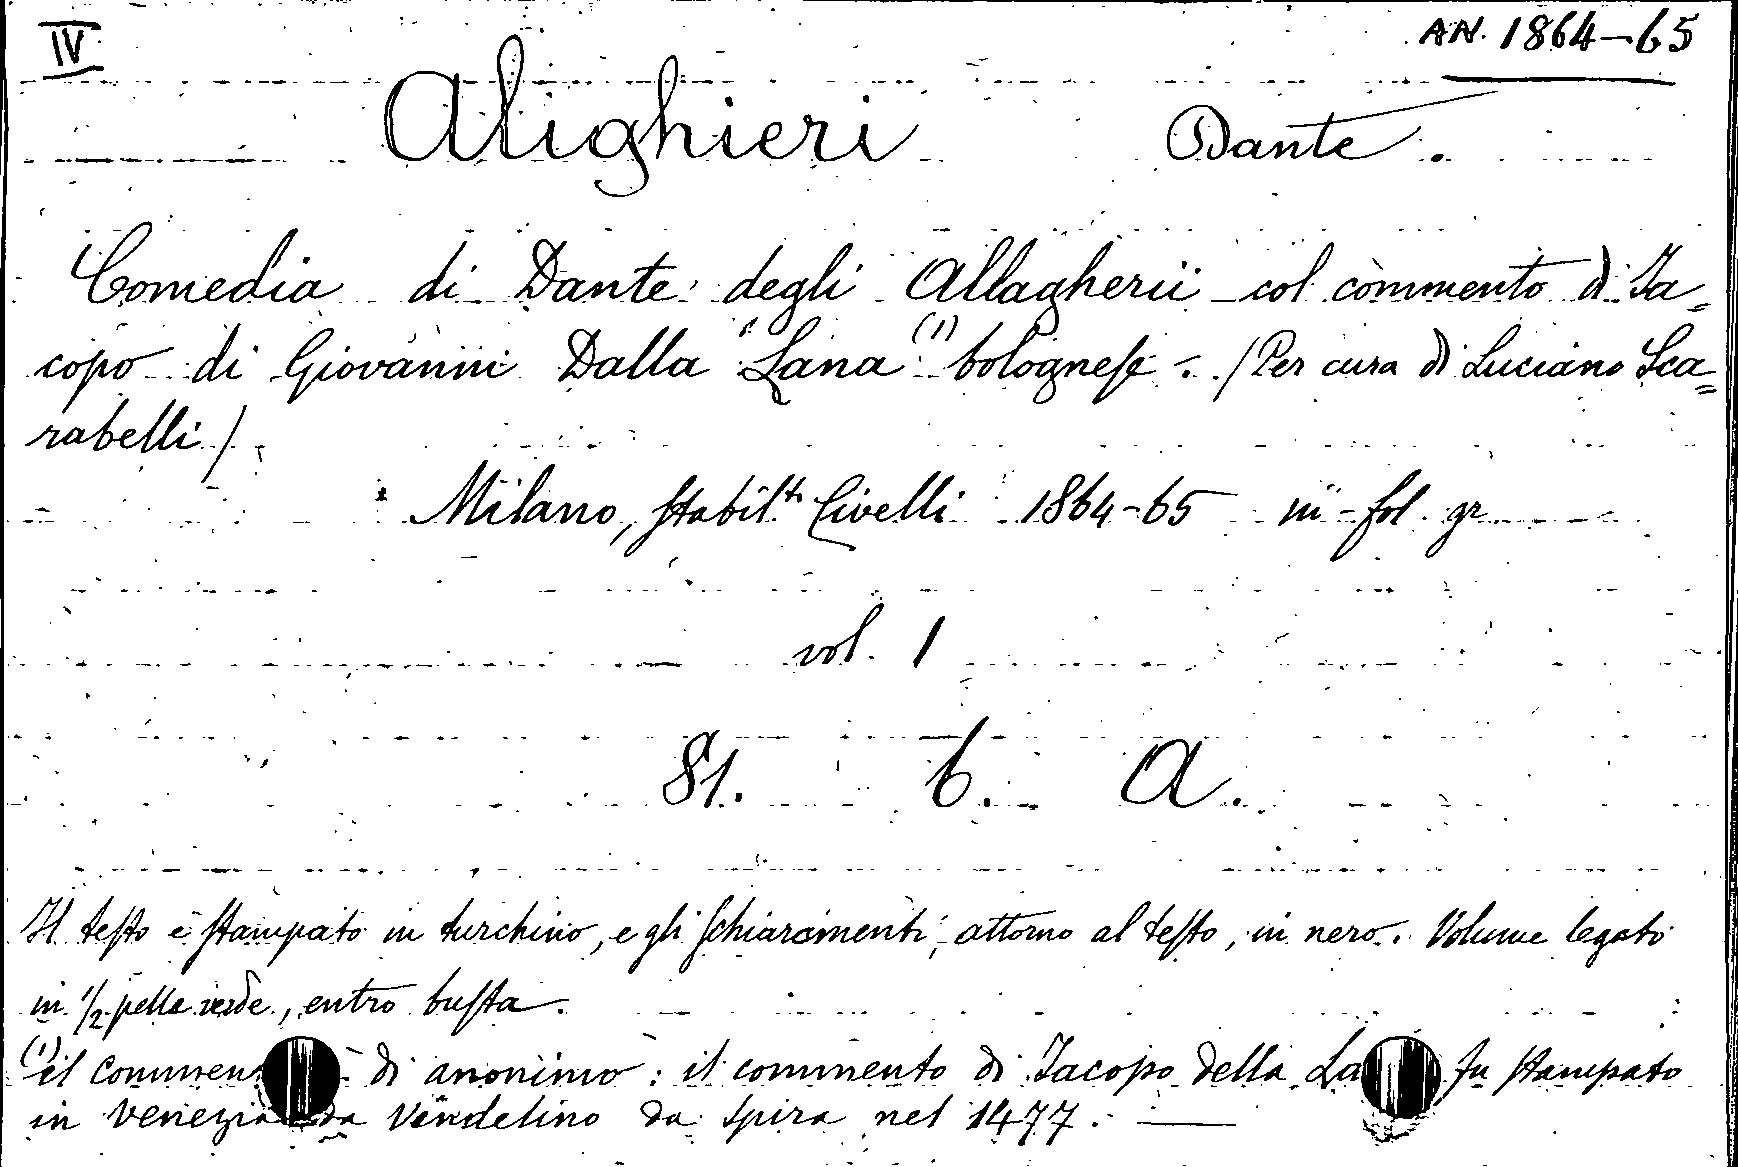 IV
AN. 1864-65
Alighieri Dante.
Comedia di Dante degli Allagherii col commento di Ja=
copo di Giovanni Dalla "Lana"(1) bolognese. /Per cura di Luciano Sca=
rabelli/.
Milano, stabilto Civelli 1864-65 in-fol. gr
vol. 1
81. b. A.
Il testo è stampato in turchino, e gli schiaramenti, attorno al testo, in nero. Volume legato
in 1/2 pelle verde, entro busta.
(1) il commen è di anonimo: il commento di Jacopo della La fu stampato
in Venezia da Vindelino da Spira nel 1477.